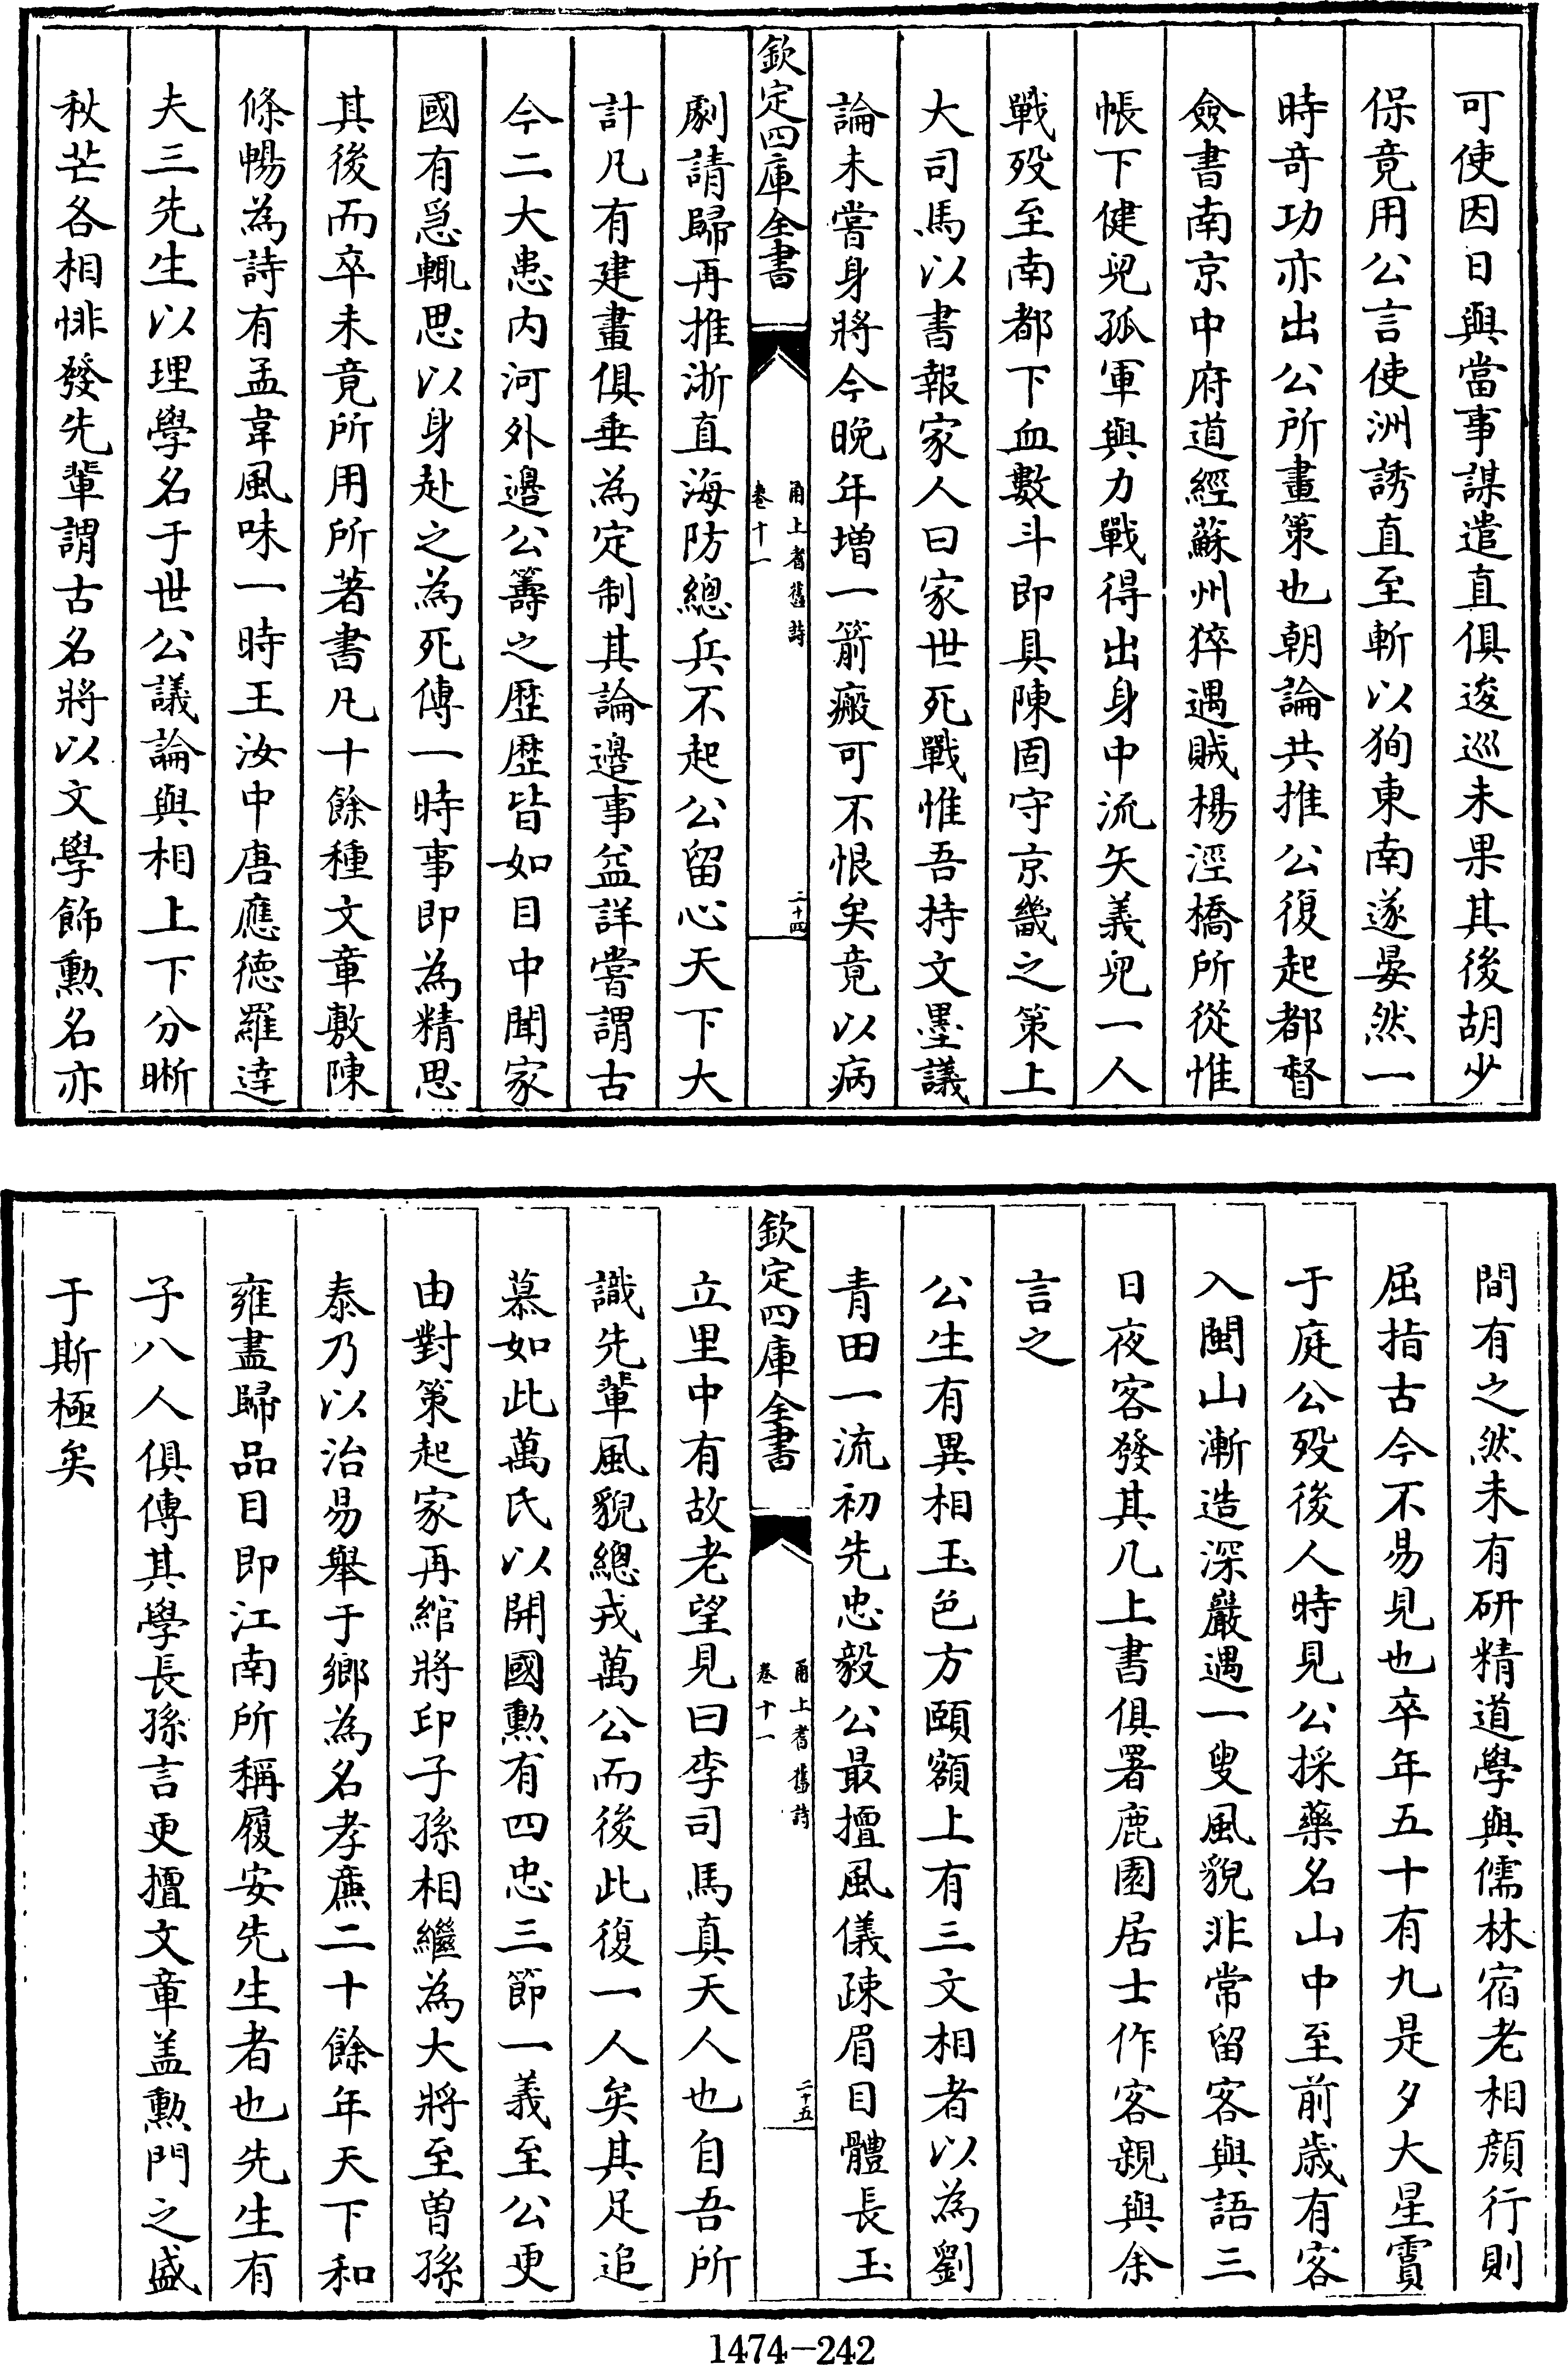 可使因日與當事謀遣直俱逡巡未果其後胡少
保竟用公言使洲誘直至斬以狥東南遂晏然一
時竒功亦出公所畫策也朝論共推公復起都督
僉書南京中府道經蘇州猝遇賊楊涇橋所從惟
帳下健兒孤軍與力戰得出身中流矢義兒一人
戰殁至南都下血數斗即具陳固守京畿之策上
大司馬以書報家人曰家世死戰惟吾持文墨議
論未嘗身將今晚年增一箭瘢可不恨矣竟以病
欽定四庫全書
甬上耆舊詩
卷十一
二十四
劇請歸再推浙直海防總兵不起公留心天下大
計凡有建畫俱垂為定制其論邉事益詳嘗謂古
今二大患内河外邉公籌之歴歴皆如目中聞家
國有急輒思以身赴之為死傅一時事即為精思
其後而卒未竟所用所著書凡十餘種文章敷陳
條暢為詩有孟韋風味一時王汝中唐應徳羅達
夫三先生以理學名于世公議論與相上下分晰
秋芒各相悱發先輩謂古名將以文學飾勲名亦
間有之然未有研精道學與儒林宿老相頡行則
屈指古今不易見也卒年五十有九是夕大星實
于庭公殁後人時見公採藥名山中至前歳有客
入閩山漸造深巖遇一叟風貌非常留客與語三
日夜客發其几上書俱署鹿園居士作客親與余
言之
公生有異相玉色方頤額上有三文相者以為劉
青田一流初先忠毅公最擅風儀疎眉目體長玉
欽定四庫全書
甬上耆舊詩
卷十一
二十五
立里中有故老望見曰李司馬真天人也自吾所
識先輩風貌總戎萬公而後此復一人矣其足追
慕如此萬氏以開國勲有四忠三節一義至公更
由對策起家再綰將印子孫相繼為大將至曽孫
泰乃以治易舉于鄉為名孝亷二十餘年天下和
雍盡歸品目即江南所稱履安先生者也先生有
子八人俱傳其學長孫言更擅文章盖勲門之盛
于斯極矣
1474-242